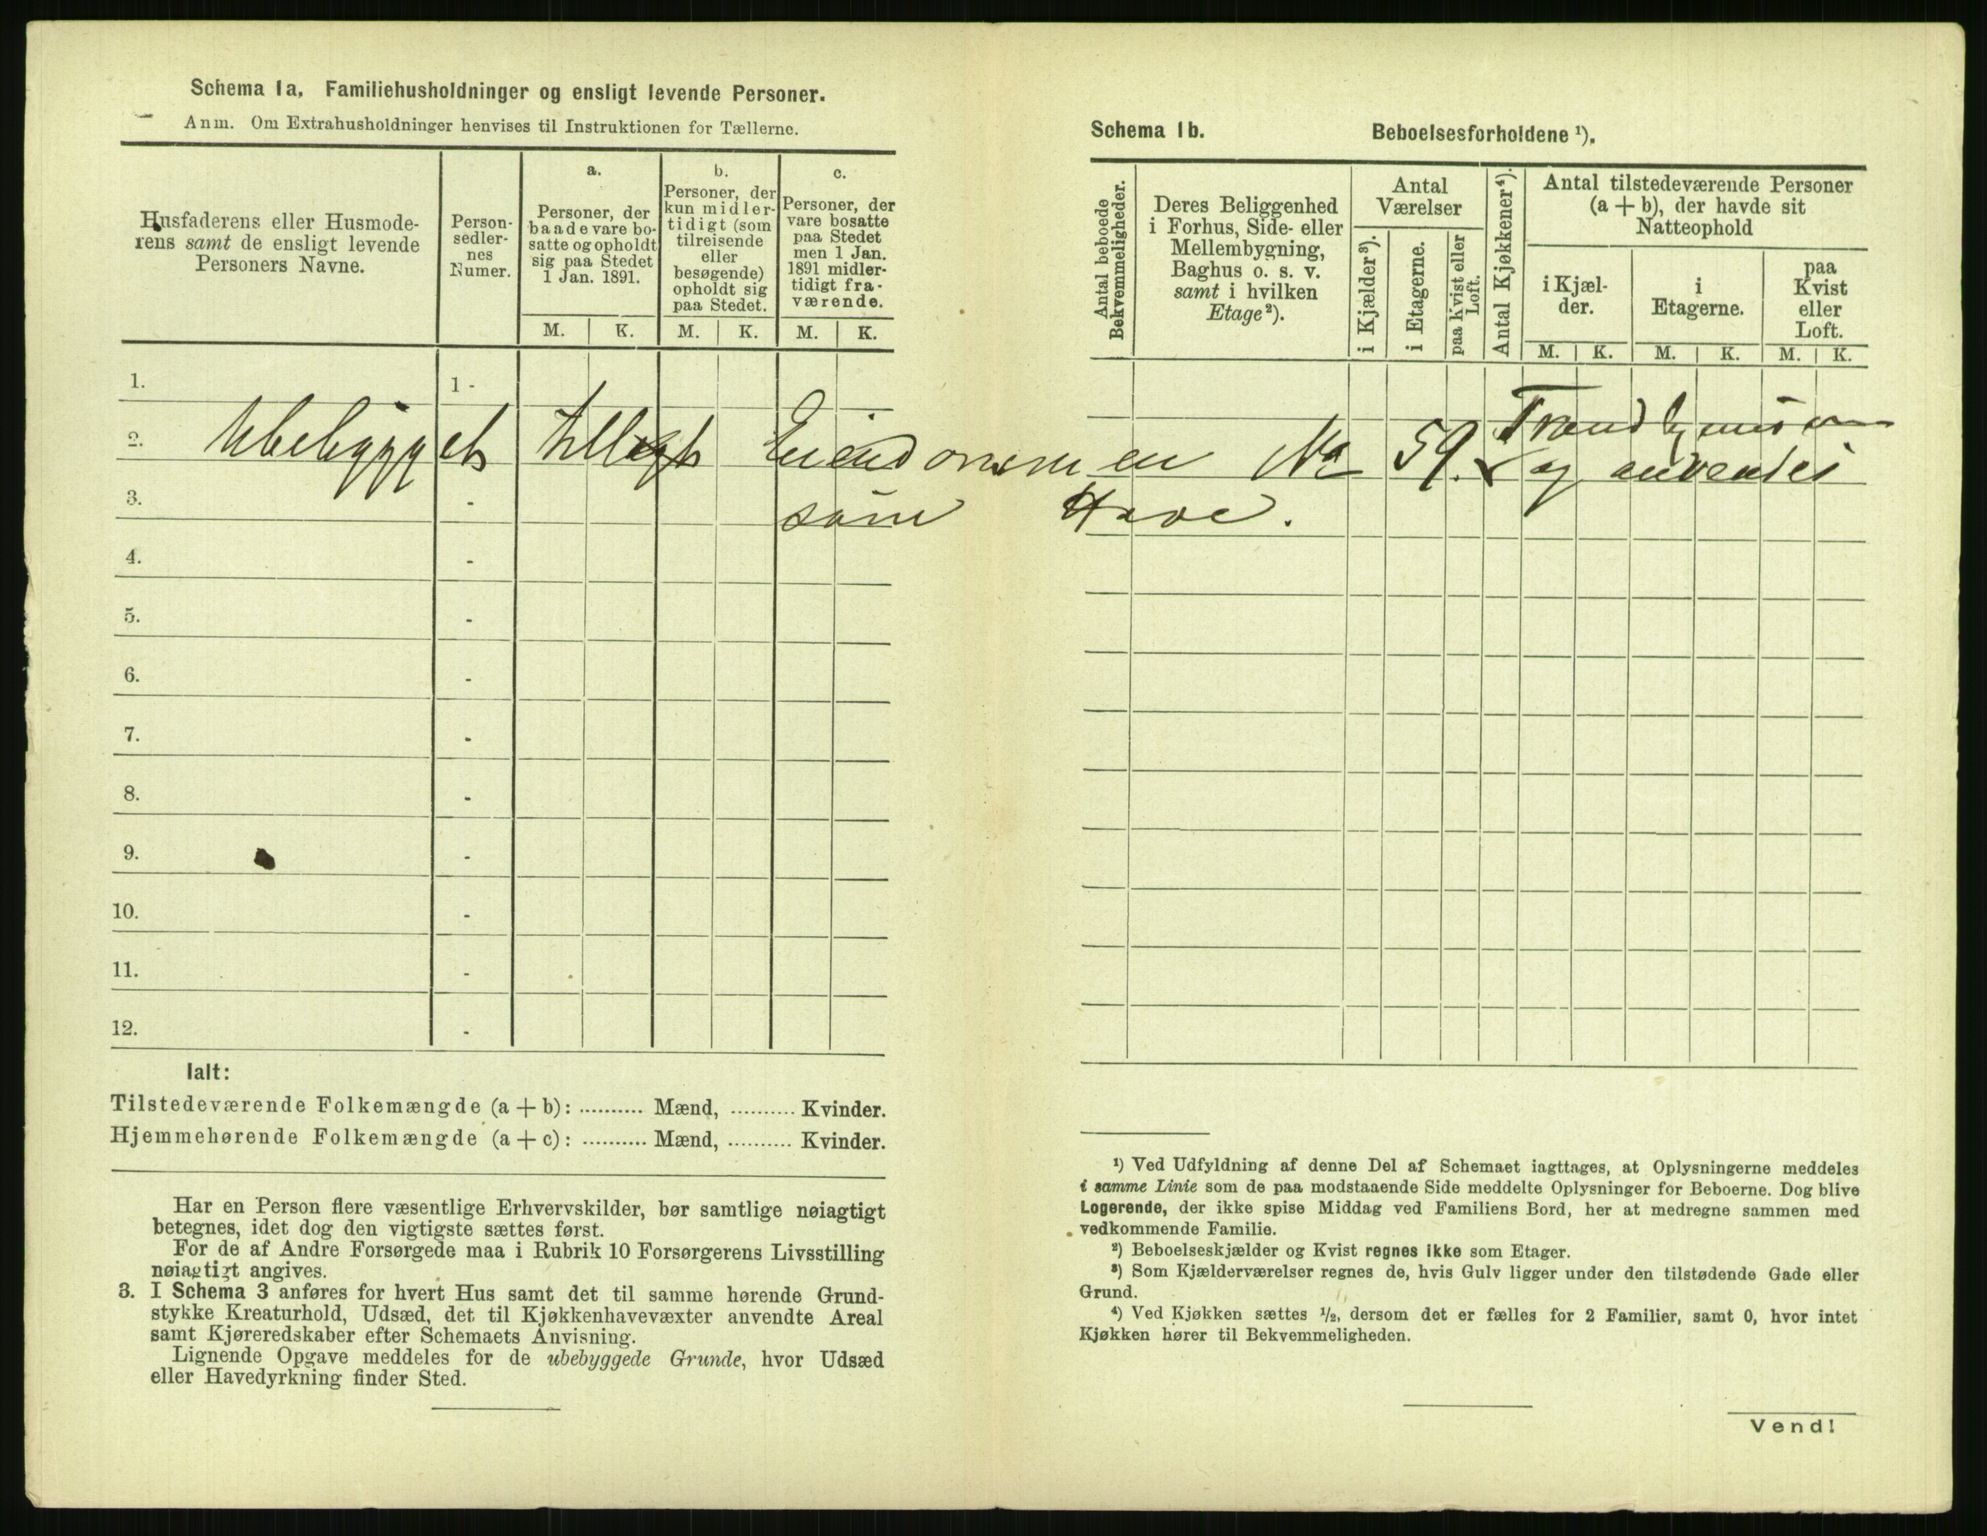 Schema 1a. Familiehusholdninger og ensligt levende Personer.
Anm. Om Extrahusholdninger henvises til Instruktionen for Tællerne.
Husfaderens eller Husmode-
rens samt de ensligt levende
Personers Navne.
Person-
sedler-
nes
Numer.
a.
Personer, der
baade vare bo-
satte og opholdt
sig paa Stedet
1 Jan. 1891.
b.
Personer, der
kun midler-
tidigt (som
tilreisende
eller
besøgende)
opholdt sig
paa Stedet.
c.
Personer, der
vare bosatte
paa Stedet
men 1 Jan.
1891 midler-
tidigt fra-
værende.
M. K. M. K. M. K.
1. 1 -
2. Ubebygget tillagt Eiendommen No 59.
3. -
som Have.
4. -
5. -
6. -
7. -
8. -
9. -
10. -
11. -
12. -
Ialt:
Tilstedeværende Folkemængde (a + b): .......... Mænd, .......... Kvinder.
Hjemmehørende Folkemængde (a + c): .......... Mænd, .......... Kvinder.
Har en Person flere væsentlige Erhvervskilder, bør samtlige nøiagtigt
betegnes, idet dog den vigtigste sættes først.
For de af Andre Forsørgede maa i Rubrik 10 Forsørgerens Livsstilling
nøiagtigt angives.
3. I Schema 3 anføres for hvert Hus samt det til samme hørende Grund-
stykke Kreaturhold, Udsæd, det til Kjøkkenhavevæxter anvendte Areal
samt Kjøreredskaber efter Schemaets Anvisning.
Lignende Opgave meddeles for de ubebyggede Grunde, hvor Udsæd
eller Havedyrkning finder Sted.
Schema 1b. Beboelsesforholdene ¹).
Antal beboede
Bekvemmeligheder.
Deres Beliggenhed
i Forhus, Side- eller
Mellembygning,
Baghus o. s. v.
samt i hvilken
Etage ²).
Antal
Værelser
i Kjælder ³).
i Etagerne.
paa Kvist eller
Loft.
Antal Kjøkkener ⁴).
Antal tilstedeværende Personer
(a + b), der havde sit
Natteophold
i Kjæl-
der.
i
Etagerne.
paa
Kvist
eller
Loft.
M. K. M. K. M. K.
og anvendes
¹) Ved Udfyldning af denne Del af Schemaet iagttages, at Oplysningerne meddeles
i samme Linie som de paa modstaaende Side meddelte Oplysninger for Beboerne. Dog blive
Logerende, der ikke spise Middag ved Familiens Bord, her at medregne sammen med
vedkommende Familie.
²) Beboelseskjælder og Kvist regnes ikke som Etager.
³) Som Kjælderværelser regnes de, hvis Gulv ligger under den tilstødende Gade eller
Grund.
⁴) Ved Kjøkken sættes ½, dersom det er fælles for 2 Familier, samt 0, hvor intet
Kjøkken hører til Bekvemmeligheden.
Vend!